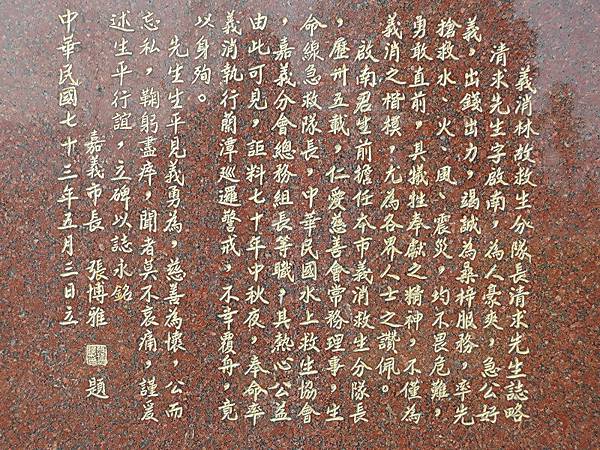 義消林故救生分隊長清求先生誌略
清求先生字啟南，為人豪爽，急公好
義，出錢出力，竭誠為桑梓服務，率先
搶救水、火、風、震災，均不畏危難，
勇敢直前，其犧牲奉獻之精神，不僅為
義消之楷模，尤為各界人士之讚佩。
啟南君生前擔任本市義消救生分隊長
，歷卅五載，仁愛慈善會常務理事，生
命線急救隊長，中華民國水上救生協會
，嘉義分會總務組長等職，其熱心公益
由此可見，詎料七十年中秋夜，奉命率
義消執行蘭潭巡邏警戒，不幸覆舟，竟
以身殉。
先生生平見義勇為，慈善為懷，公而
忘私，鞠躬盡瘁，聞者莫不哀痛，謹爰
述生平行誼，立碑以誌永銘
嘉義市長 張博雅 題
中華民國七十三年五月三日立